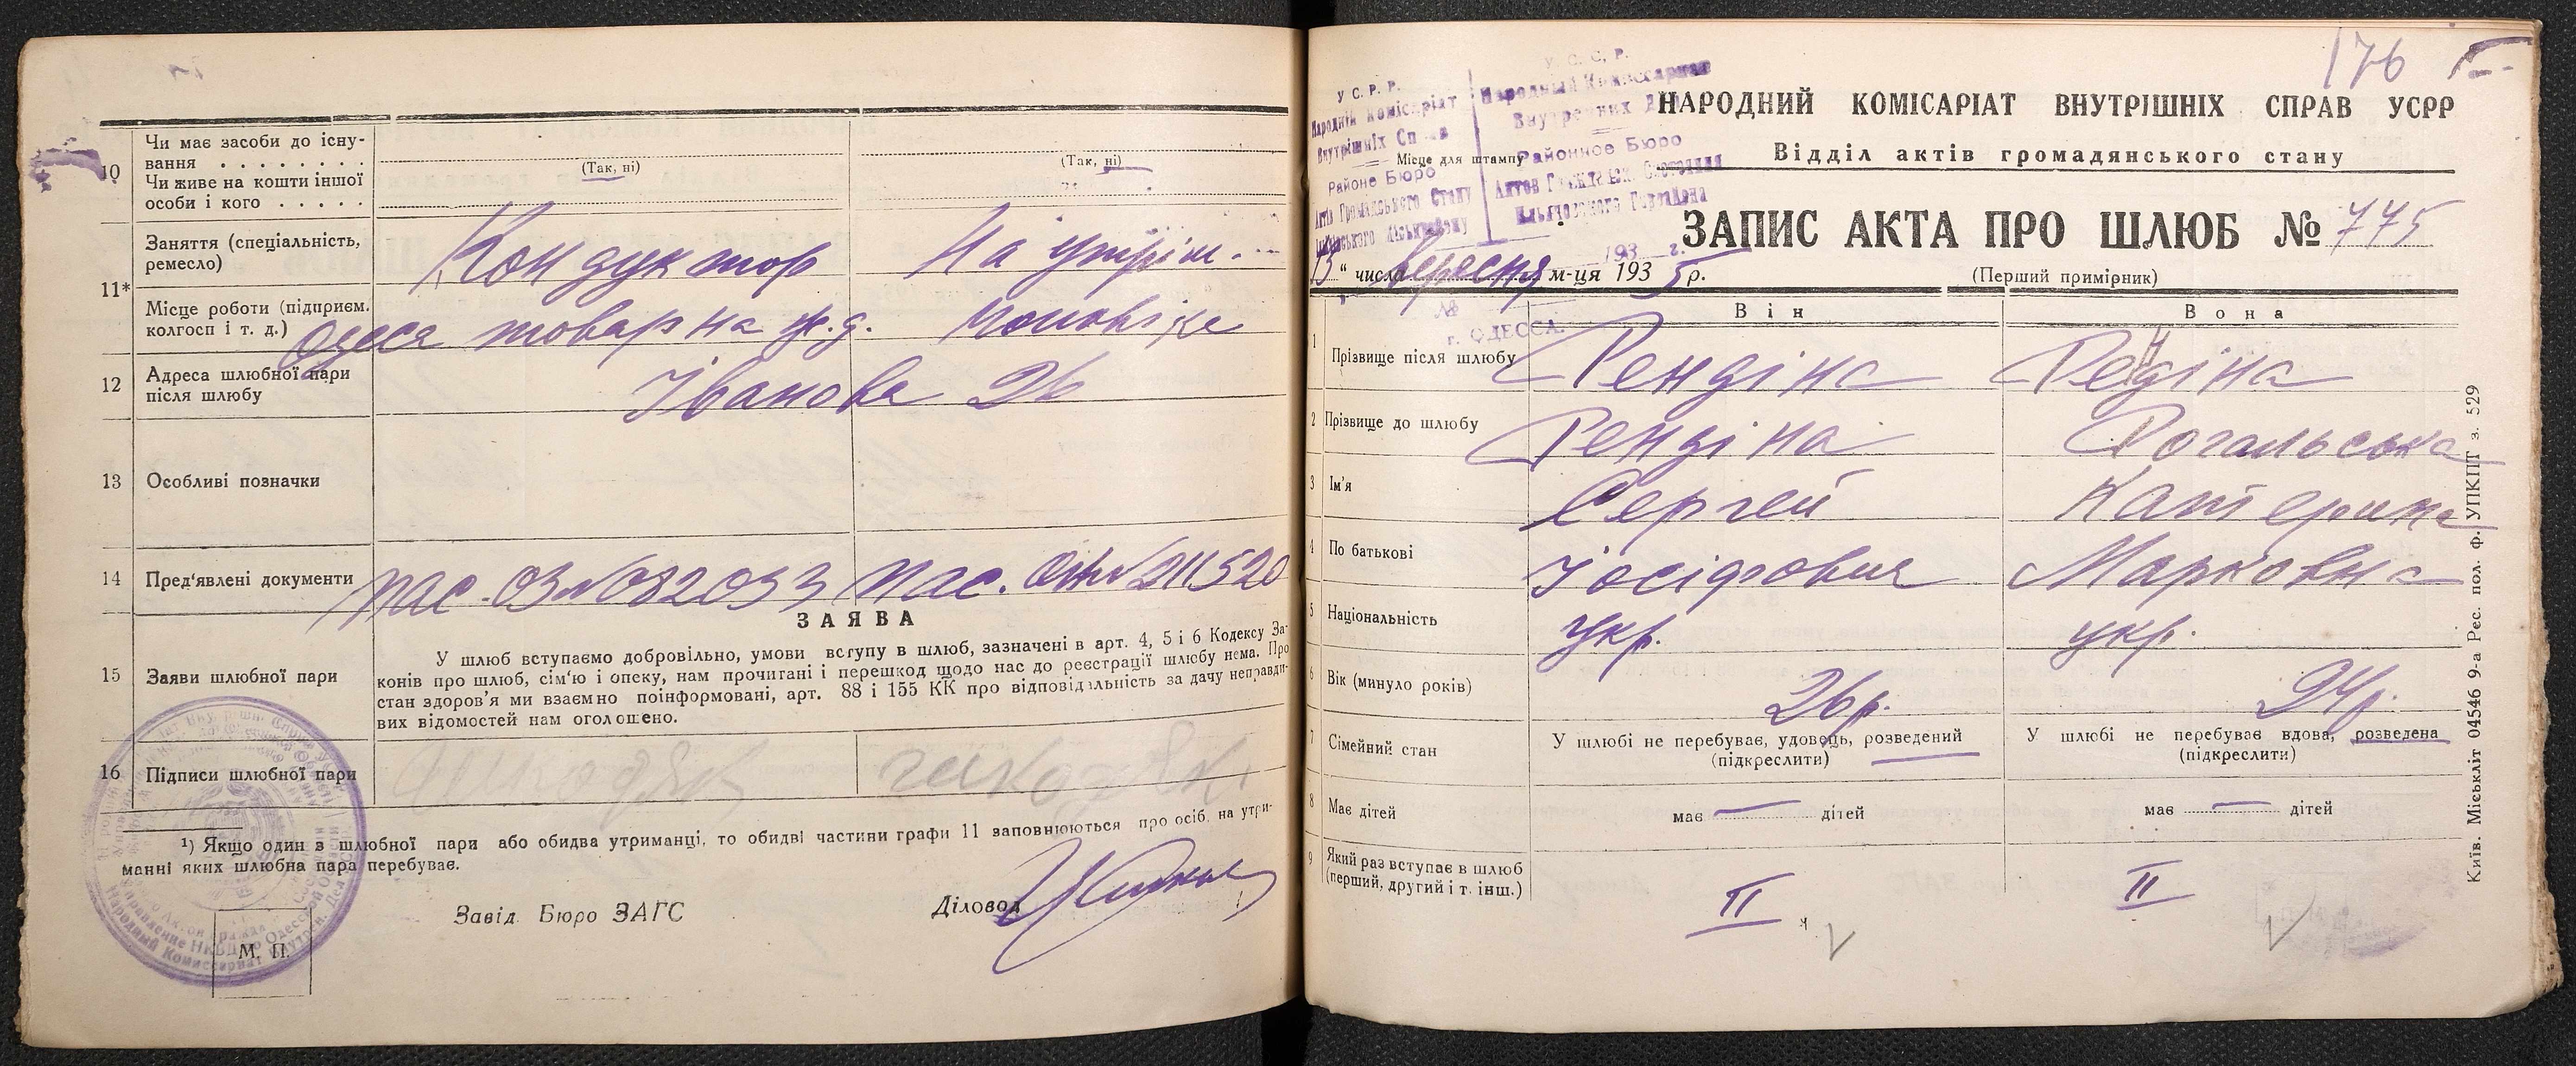 10
Чи має засоби до існу-
вання . . . . . . . .
Чи живе на кошти іншої
особи і кого . . . . .
(Так, ні)
(Так, ні)
11*
Заняття (спеціальність,
ремесло)
Кондуктор
На утрим.
Місце роботи (підприєм.
колгосп і т. д.)
Одеса товарна ж.д.
чоловіка
12
Адреса шлюбної пари
після шлюбу
Іванова 26
13
Особливі позначки
14
Пред'явлені документи
пас. ОЗ № 082033
пас. № 211520
ЗАЯВА
15
Заяви шлюбної пари
У шлюб вступаємо добровільно, умови вступу в шлюб, зазначені в арт. 4, 5 і 6 Кодексу За-
конів про шлюб, сім'ю і опеку, нам прочитані і перешкод щодо нас до реєстрації шлюбу нема. Про
стан здоров'я ми взаємно поінформовані, арт. 88 і 155 КК про відповідальність за дачу неправди-
вих відомостей нам оголошено.
16
Підписи шлюбної пари
¹) Якщо один з шлюбної пари або обидва утриманці, то обидві частини графи 11 заповнюються про осіб, на утри-
манні яких шлюбна пара перебуває.
Завід. Бюро ЗАГС
Діловод
М. П.
176
У С. Р. Р.
Народній Комісаріат
Внутрішніх Справ
Районе Бюро
Актів Громадського Стану
У. С. С. Р.
Народный Комиссариат
Внутренних Дел
Районное Бюро
Актов Граждан. Состояния
Ильичовского Горрайона
193 г.
№
г. ОДЕССА.
Місце для штампу
НАРОДНИЙ КОМІСАРІАТ ВНУТРІШНІХ СПРАВ УСРР
Відділ актів громадянського стану
ЗАПИС АКТА ПРО ШЛЮБ № 775
15 " числа вересня м-ця 1935 р.
(Перший примірник)
Він
Вона
1
Прізвище після шлюбу
Рендіна
Редіна
н
2
Прізвище до шлюбу
Рендіна
Рогальська
3
Ім'я
Сергей
Катерина
4
По батькові
Йосіфович
Марковна
5
Національність
укр.
укр.
6
Вік (минуло років)
26 р.
24 р.
7
Сімейний стан
У шлюбі не перебуває, удовець, розведений
(підкреслити)
У шлюбі не перебуває вдова, розведена
(підкреслити)
8
Має дітей
має — дітей
має — дітей
9
Який раз вступає в шлюб
(перший, другий і т. інш.)
II
II
Київ. Міськліт 04546 9-а Рес. пол. ф. УПКПТ з. 529